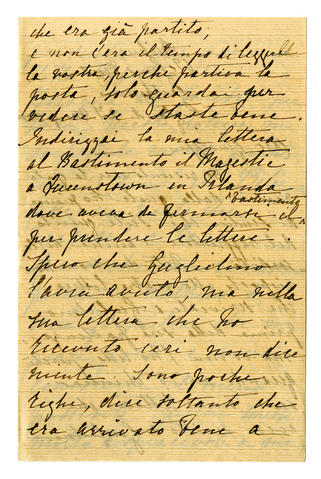 che era già partito,
e non c'era il tempo di leggere
la vostra, perché partiva la
posta, solo guardai per
vedere se staste bene.
Indirizzai la mia lettera
al Bastimento il Magestic
a Queenstown in Irlanda
dove aveva da fermarsi il
bastimento
per prendere le lettere.
Spero che Guglielmo
l'avrà avuto, ma nella
sua lettera che ho
ricevuto ieri non dice
niente. Sono poche
righe, dice soltanto che
era arrivato bene a